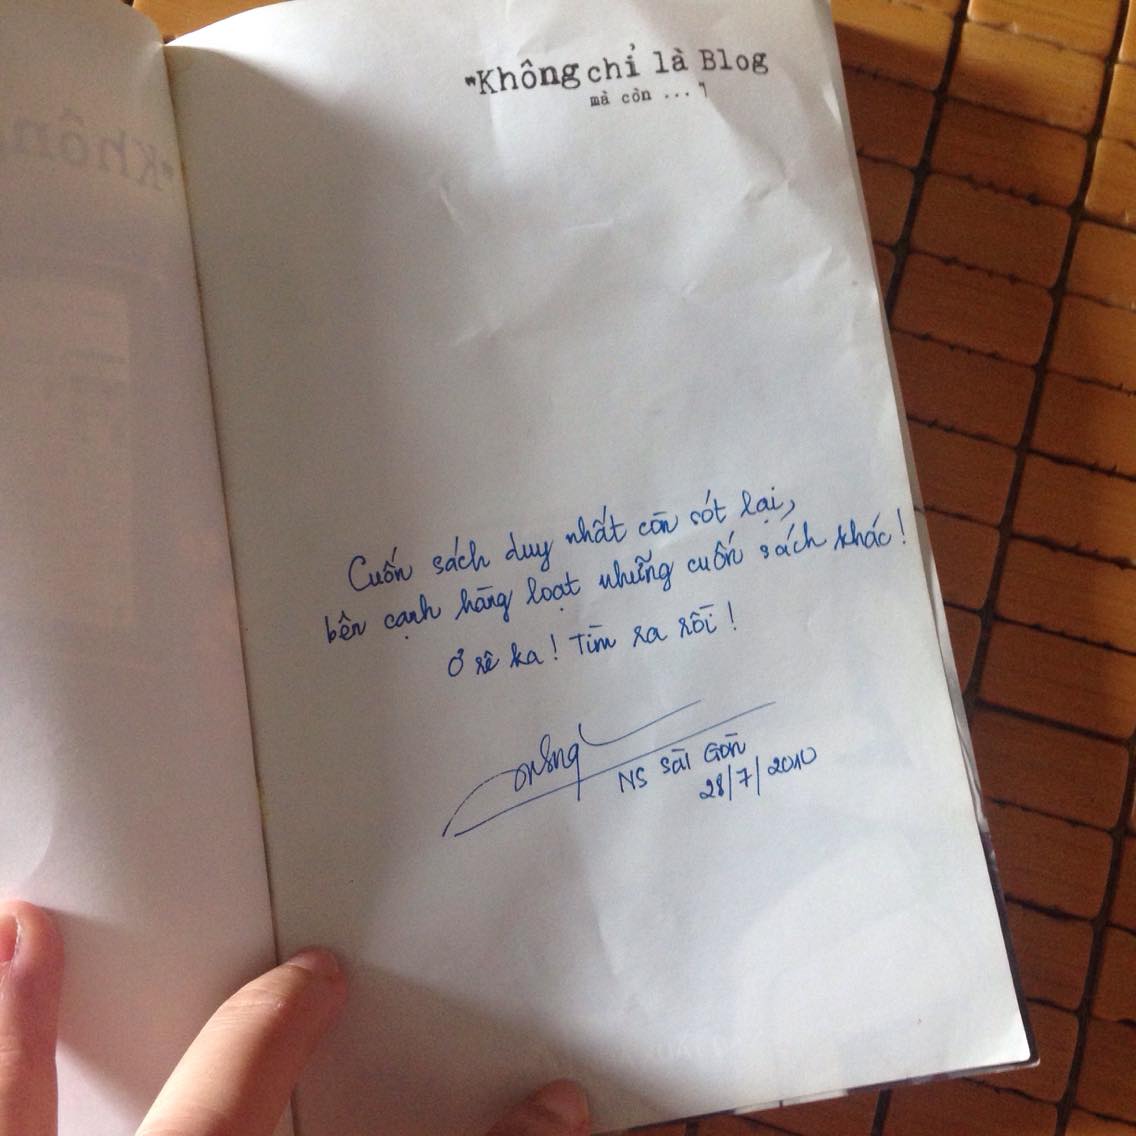 "Không chỉ là Blog
mà còn ..."
Cuốn sách duy nhất còn sót lại,
bên cạnh hàng loạt những cuốn sách khác!
Ơ rê ka! Tìm ra rồi!
NS Sài Gòn
28/7/2010